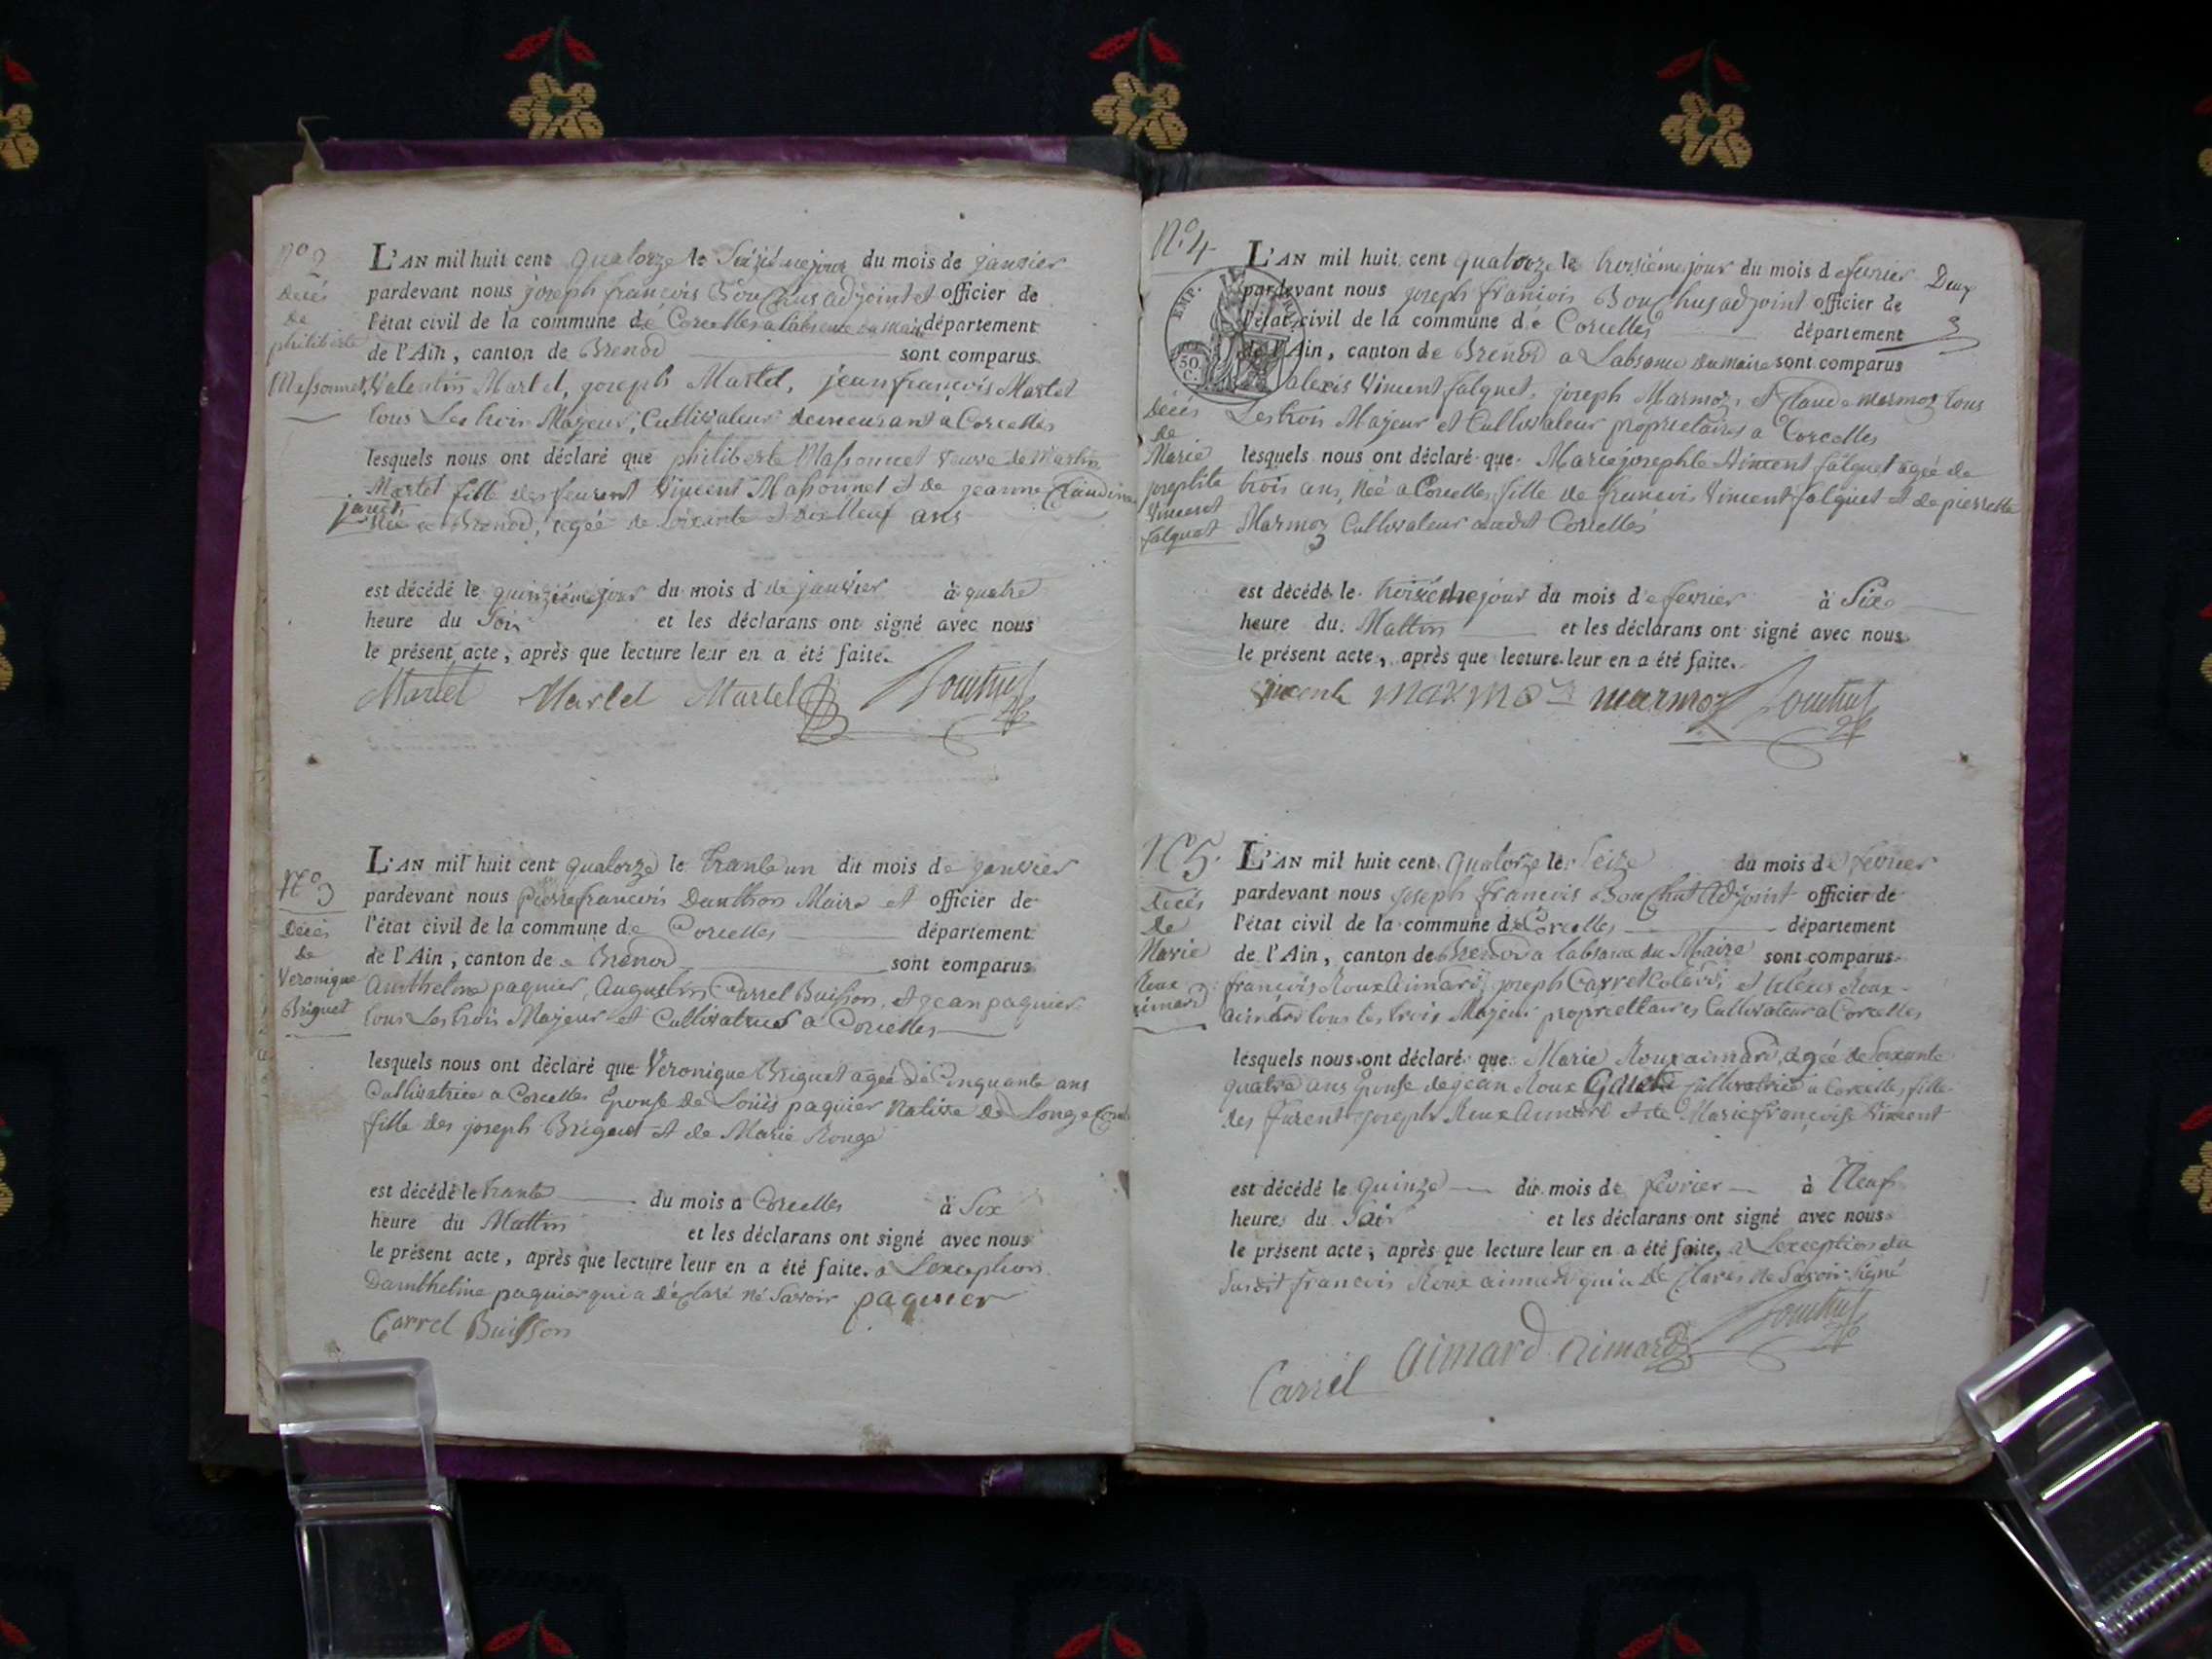 N° 2
Décés
de
philiberte
Massonnet
L'AN mil huit cent quatorze le Seizieme jour du mois de janvier
pardevant nous joseph françois Bouchus adjoint et officier de
l'état civil de la commune de Corcelles a labsence du maire département
de l'Ain, canton de Brenod sont comparus
Valentin Martel, joseph Martel, jean françois Martel
tous Les trois Majeur, Cultivateur demeurant a Corcelles
lesquels nous ont déclaré que philiberte Massonnet veuve de Martin
Martel fille des feurent Vincent Massonnet et de jeanne Claudine
janet
née a Brenod, agée de soixante et dix Neuf ans
est décédé le quinzième jour du mois d de janvier à quatre
heure du Soir et les déclarans ont signé avec nous
le présent acte, après que lecture leur en a été faite.
Martel Martel Martel Bouchus
N° 3
Décés
de
Veronique
Briguet
L'AN mil huit cent quatorze le trante un du mois de janvier
pardevant nous Pierre françois Danthon Maire et officier de
l'état civil de la commune de Corcelles département
de l'Ain, canton de e Brenod sont comparus
Anthelme paquier, Augustin Carrel Buisson, et jean paquier
tous Les trois Majeur et Cultivateur a Corcelles
lesquels nous ont déclaré que Veronique Briguet agée de Cinquante ans
Cultivatrice a Corcelles Epouse de Loüis paquier Native de Longe Com
fille des joseph Briguet et de Marie Rouge
est décédé le trante du mois a Corcelles à Six
heure du Mattin et les déclarans ont signé avec nous
le présent acte, après que lecture leur en a été faite. a Lexception
Danthelme paquier qui a déclaré né Savoir paquier
Carrel Buisson
N° 4
Deux
EMP.
50
C.
Décés
de
Marie
josephte
Vincent
falquet
L'AN mil huit cent quatorze le troisième jour du mois de fevrier
pardevant nous joseph françois Bouchus adjoint officier de
l'état civil de la commune de Corcelles département
de l'Ain, canton de Brenod a Labsance du Maire sont comparus
alexis Vincent falquet, joseph Marmoz, et Claude Marmoz tous
Les trois Majeur et Cultivateur proprietaires a Corcelles
lesquels nous ont déclaré que Marie josephte Vincent falquet agée de
trois ans, Neé a Corcelles, fille de francois Vincent falquet et de pierrette
Marmoz Cultivateur audit Corcelles
est décédé le troisième jour du mois de fevrier à Six
heure du Mattin et les déclarans ont signé avec nous
le présent acte, après que lecture leur en a été faite.
vincent marmoz marmoz Bouchus
N° 5
Décés
de
Marie
Roux
aimard
L'AN mil huit cent quatorze le Seize du mois de fevrier
pardevant nous joseph francois Bouchus adjoint officier de
l'état civil de la commune de Corcelles département
de l'Ain, canton de Brenod a labsance du Maire sont comparus
françois Roux Aimard, joseph Carrel et Alexis Roux
aimard tous les trois Majeur propriettaires Cultivateur a Corcelles
lesquels nous ont déclaré que Marie Roux aimard, agée de Soixante
quatre ans Epouse de jean Roux Cultivatrice a Corcelles, fille
des furent joseph Roux Aimard et de Marie françoise Vincent
est décédé le quinze du mois de fevrier à Neuf
heure du Soir et les déclarans ont signé avec nous
le présent acte, après que lecture leur en a été faite, a Lexception du
Susdit francois Roux aimard qui a de Clarés ne Savoir signé
Carrel aimard aimard Bouchus